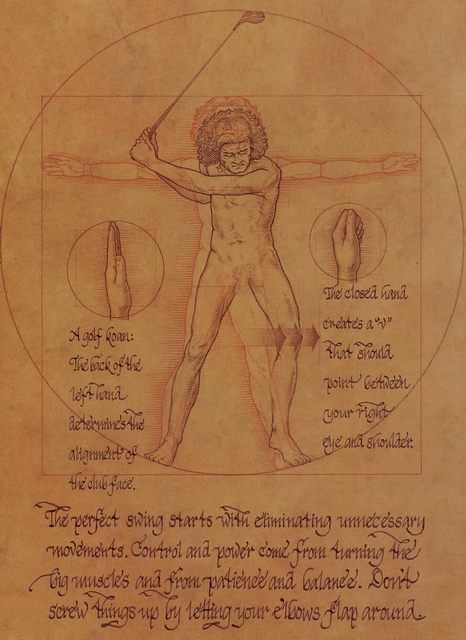 A golf koan:
The back of the
left hand
determines the
alignment of
the club face.
The closed hand
creates a "v"
that should
point between
your right
eye and shoulder.
The perfect swing starts with eliminating unnecessary
movements. Control and power come from turning the
big muscles and from patience and balance. Don't
screw things up by letting your elbows flap around.